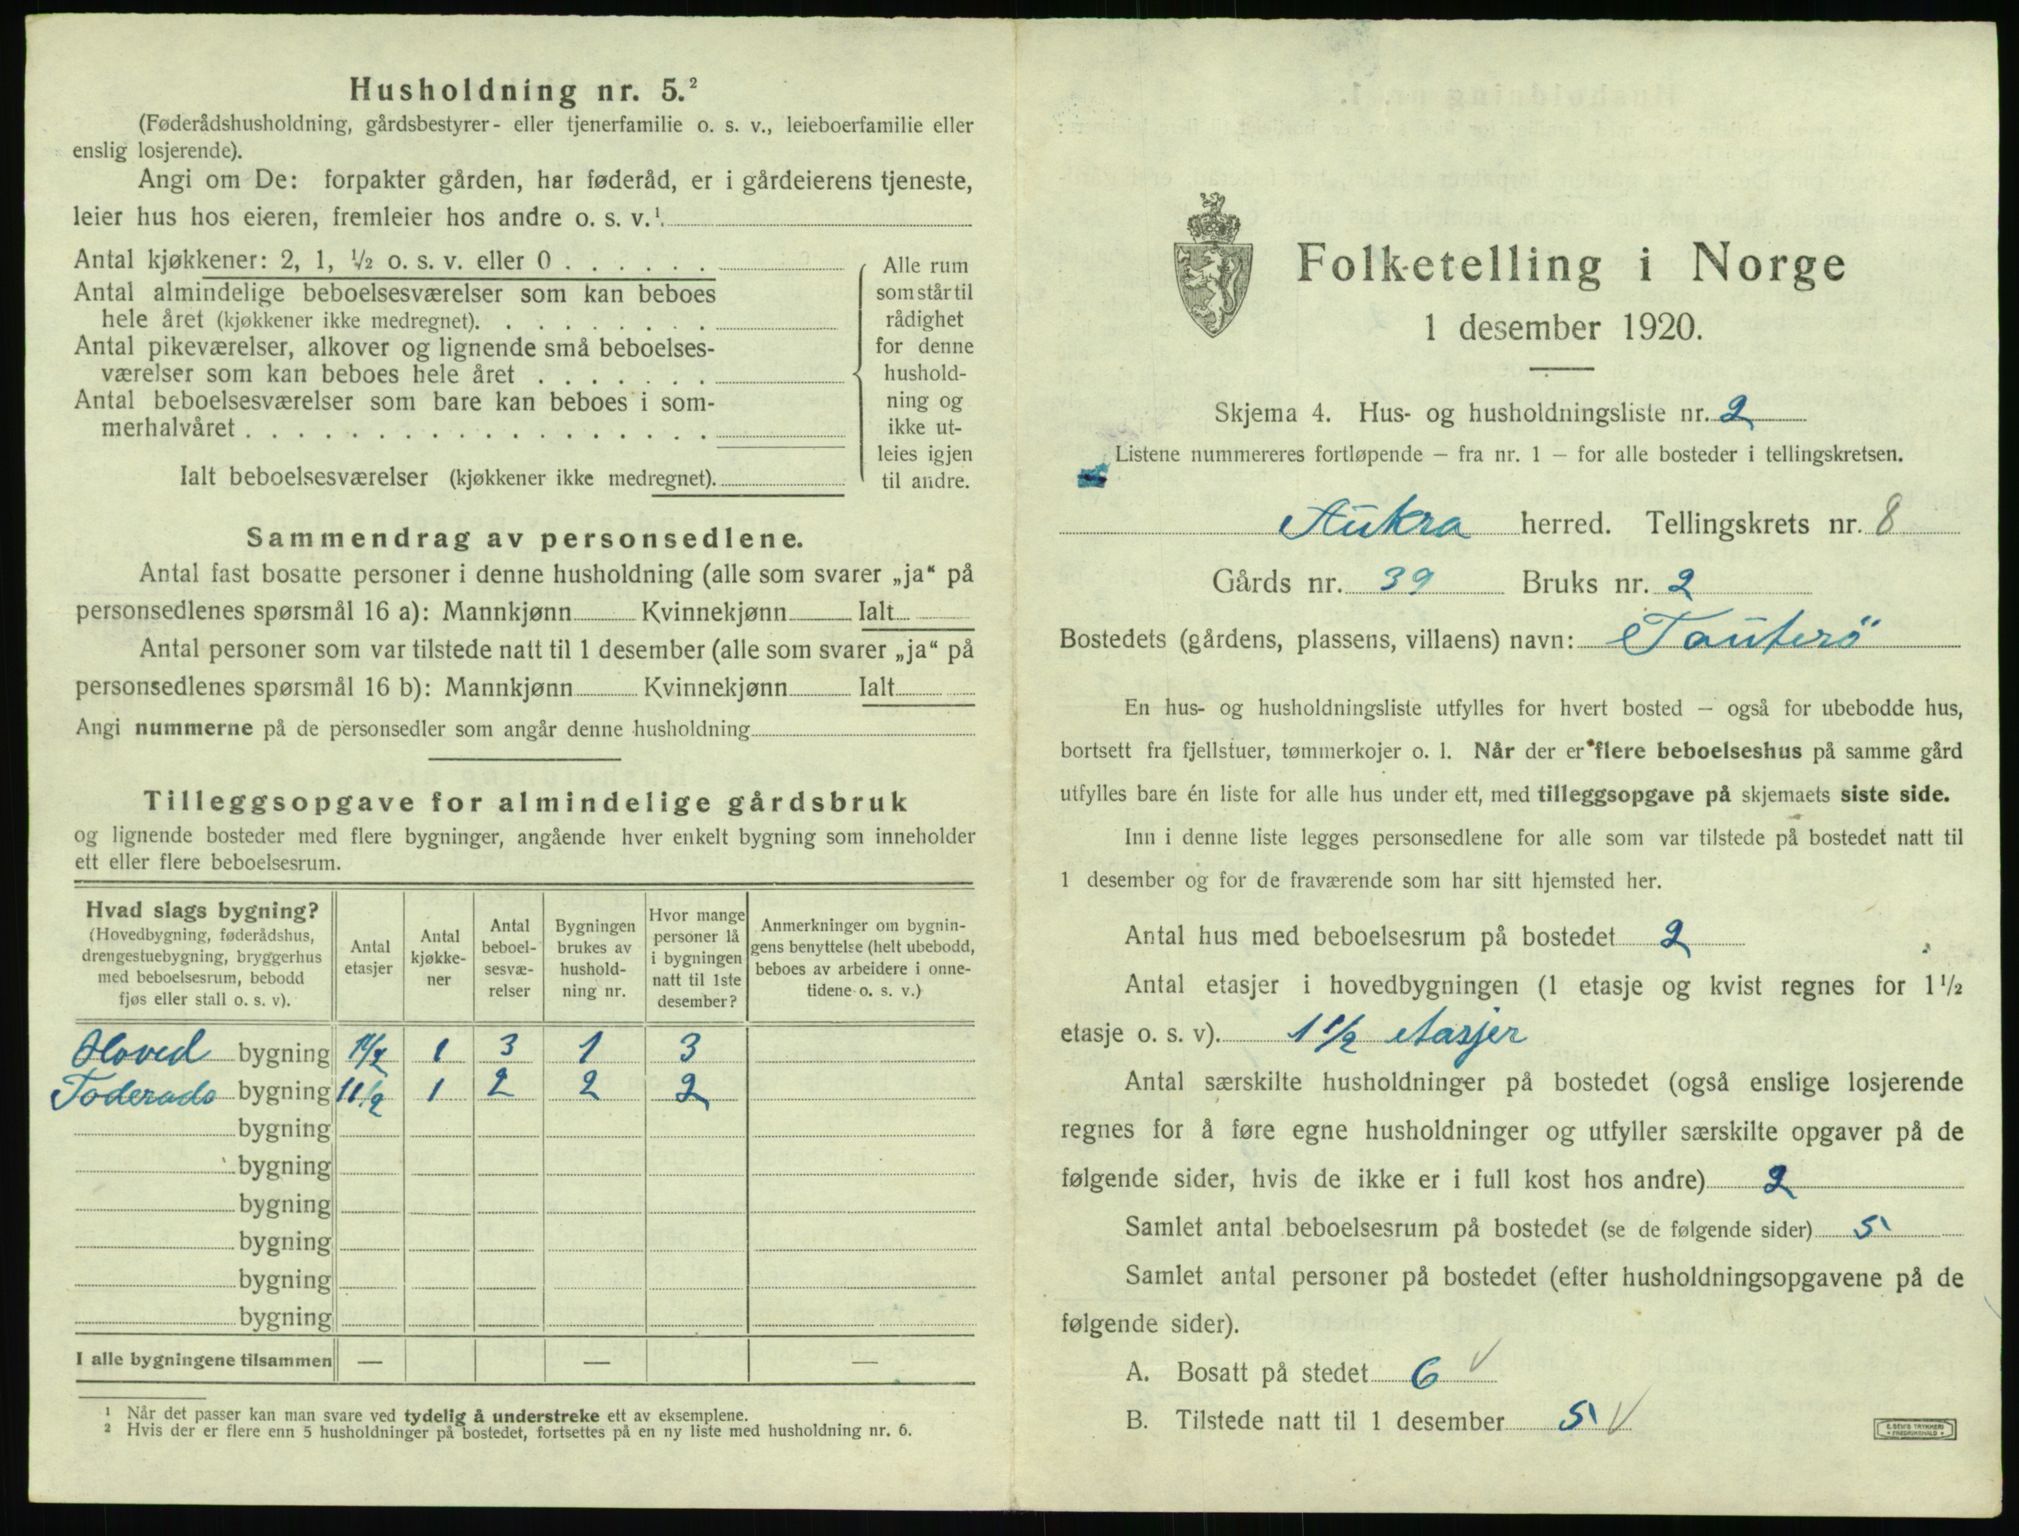 Husholdning nr. 5.²
(Føderådshusholdning, gårdsbestyrer- eller tjenerfamilie o. s. v., leieboerfamilie eller
enslig losjerende).
Angi om De: forpakter gården, har føderåd, er i gårdeierens tjeneste,
leier hus hos eieren, fremleier hos andre o. s. v.¹.
Antal kjøkkener: 2, 1, ½ o. s. v. eller 0 . . . . . .
Antal almindelige beboelsesværelser som kan beboes
hele året (kjøkkener ikke medregnet). . . . . . . . .
Antal pikeværelser, alkover og lignende små beboelses-
værelser som kan beboes hele året . . . . . . .
Antal beboelsesværelser som bare kan beboes i som-
merhalvåret . . . . . . . . . . . . . . . . . .
Ialt beboelsesværelser (kjøkkener ikke medregnet).
Alle rum
som står til
rådighet
for denne
hushold-
ning og
ikke ut-
leies igjen
til andre.
Sammendrag av personsedlene.
Antal fast bosatte personer i denne husholdning (alle som svarer „ja“ på
personsedlenes spørsmål 16 a): Mannkjønn Kvinnekjønn Ialt
Antal personer som var tilstede natt til 1 desember (alle som svarer „ja“ på
personsedlenes spørsmål 16 b): Mannkjønn Kvinnekjønn Ialt
Angi nummerne på de personsedler som angår denne husholdning
Tilleggsopgave for almindelige gårdsbruk
og lignende bosteder med flere bygninger, angående hver enkelt bygning som inneholder
ett eller flere beboelsesrum.
Hvad slags bygning?
(Hovedbygning, føderådshus,
drengestuebygning, bryggerhus
med beboelsesrum, bebodd
fjøs eller stall o. s. v).
Antal
etasjer
Antal
kjøkke-
ner
Antal
beboel-
sesvæ-
relser
Bygningen
brukes av
hushold-
ning nr.
Hvor mange
personer lå
i bygningen
natt til 1ste
desember?
Anmerkninger om bygnin-
gens benyttelse (helt ubebodd,
beboes av arbeidere i onne-
tidene o. s. v.)
Hoved bygning 1½ 1 3 1 3
Føderads bygning 1½ 1 2 2 2
bygning
bygning
bygning
bygning
bygning
bygning
I alle bygningene tilsammen — — —
¹ Når det passer kan man svare ved tydelig å understreke ett av eksemplene.
² Hvis der er flere enn 5 husholdninger på bostedet, fortsettes på en ny liste med husholdning nr. 6.
Folketelling i Norge
1 desember 1920.
Skjema 4. Hus- og husholdningsliste nr. 2
Listene nummereres fortløpende – fra nr. 1 – for alle bosteder i tellingskretsen.
Aukra herred. Tellingskrets nr. 8
Gårds nr. 39 Bruks nr. 2
Bostedets (gårdens, plassens, villaens) navn: Tauterö
En hus- og husholdningsliste utfylles for hvert bosted – også for ubebodde hus,
bortsett fra fjellstuer, tømmerkojer o. l. Når der er flere beboelseshus på samme gård
utfylles bare én liste for alle hus under ett, med tilleggsopgave på skjemaets siste side.
Inn i denne liste legges personsedlene for alle som var tilstede på bostedet natt til
1 desember og for de fraværende som har sitt hjemsted her.
Antal hus med beboelsesrum på bostedet 2
Antal etasjer i hovedbygningen (1 etasje og kvist regnes for 1½
etasje o. s. v). 1½ etasjer
Antal særskilte husholdninger på bostedet (også enslige losjerende
regnes for å føre egne husholdninger og utfyller særskilte opgaver på de
følgende sider, hvis de ikke er i full kost hos andre) 2
Samlet antal beboelsesrum på bostedet (se de følgende sider) 5
Samlet antal personer på bostedet (efter husholdningsopgavene på de
følgende sider).
A. Bosatt på stedet 6 √
B. Tilstede natt til 1 desember 5 √
E. SEM'S TRYKKERI
FREDRIKSHALD